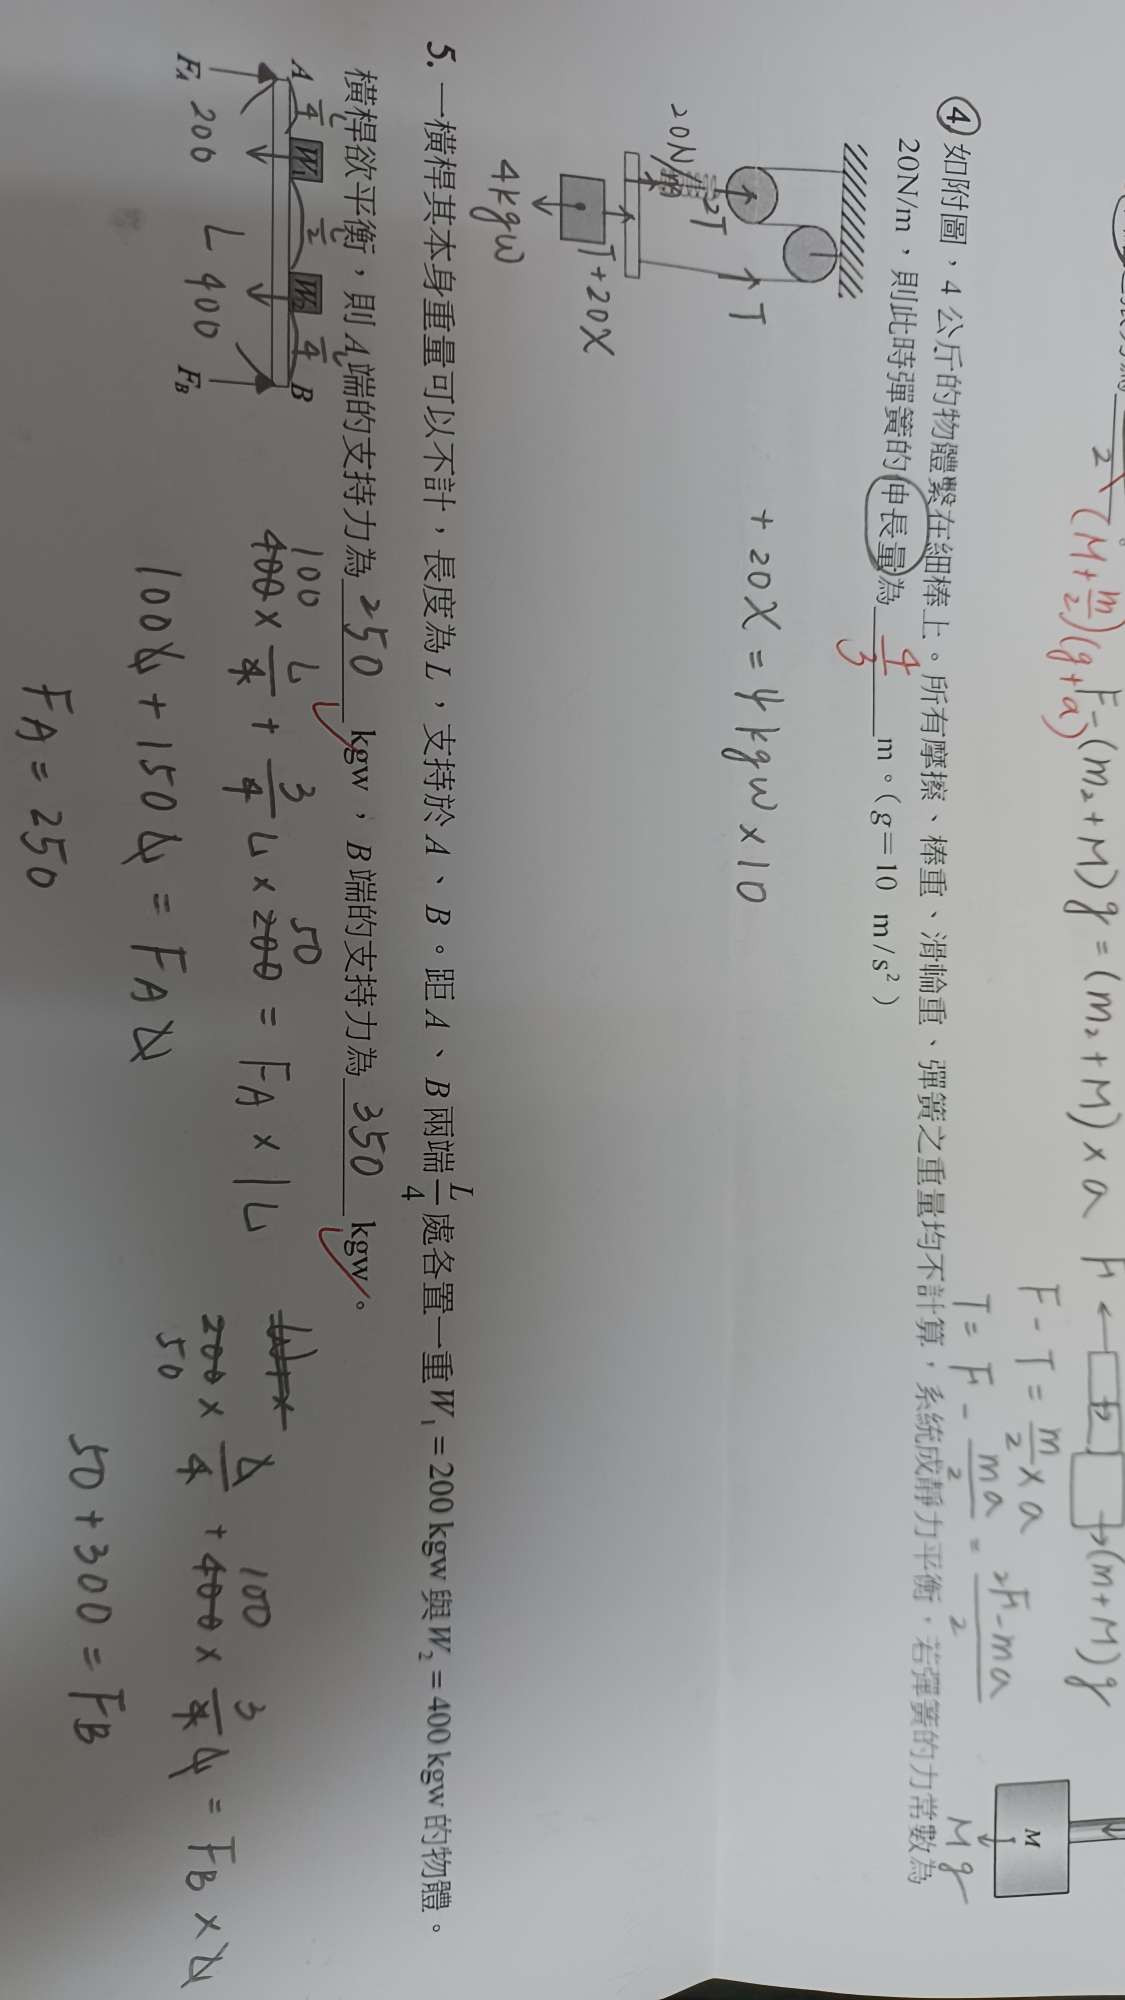 2
(M+m/2)(g+a)
F-(m₂+M)g=(m₂+M)×a
F
(m+M)g
F-T=m/2×a
T=F-ma/2=2F-ma/2
M
Mg
④ 如附圖，4 公斤的物體繫在細棒上。所有摩擦、棒重、滑輪重、彈簧之重量均不計算，系統成靜力平衡，若彈簧的力常數為
20N/m，則此時彈簧的伸長量為 4/3 m。（g＝10 m/s²）
T
2T
20N/m
T+20X
4kgw
+20X=4kgw×10
5. 一橫桿其本身重量可以不計，長度為 L，支持於 A、B。距 A、B 兩端 L/4 處各置一重 W₁＝200 kgw 與 W₂＝400 kgw 的物體。
橫桿欲平衡，則 A 端的支持力為 250 kgw，B 端的支持力為 350 kgw。
A L/4 W₁ L/2 W₂ L/4 B
F_A 200 L 400 F_B
100
400×L/4+3/4L×200=FA×1L
50
100L+150L=FAL
FA=250
200×L/4+400×3/4L=FB×L
50 100
50+300=FB